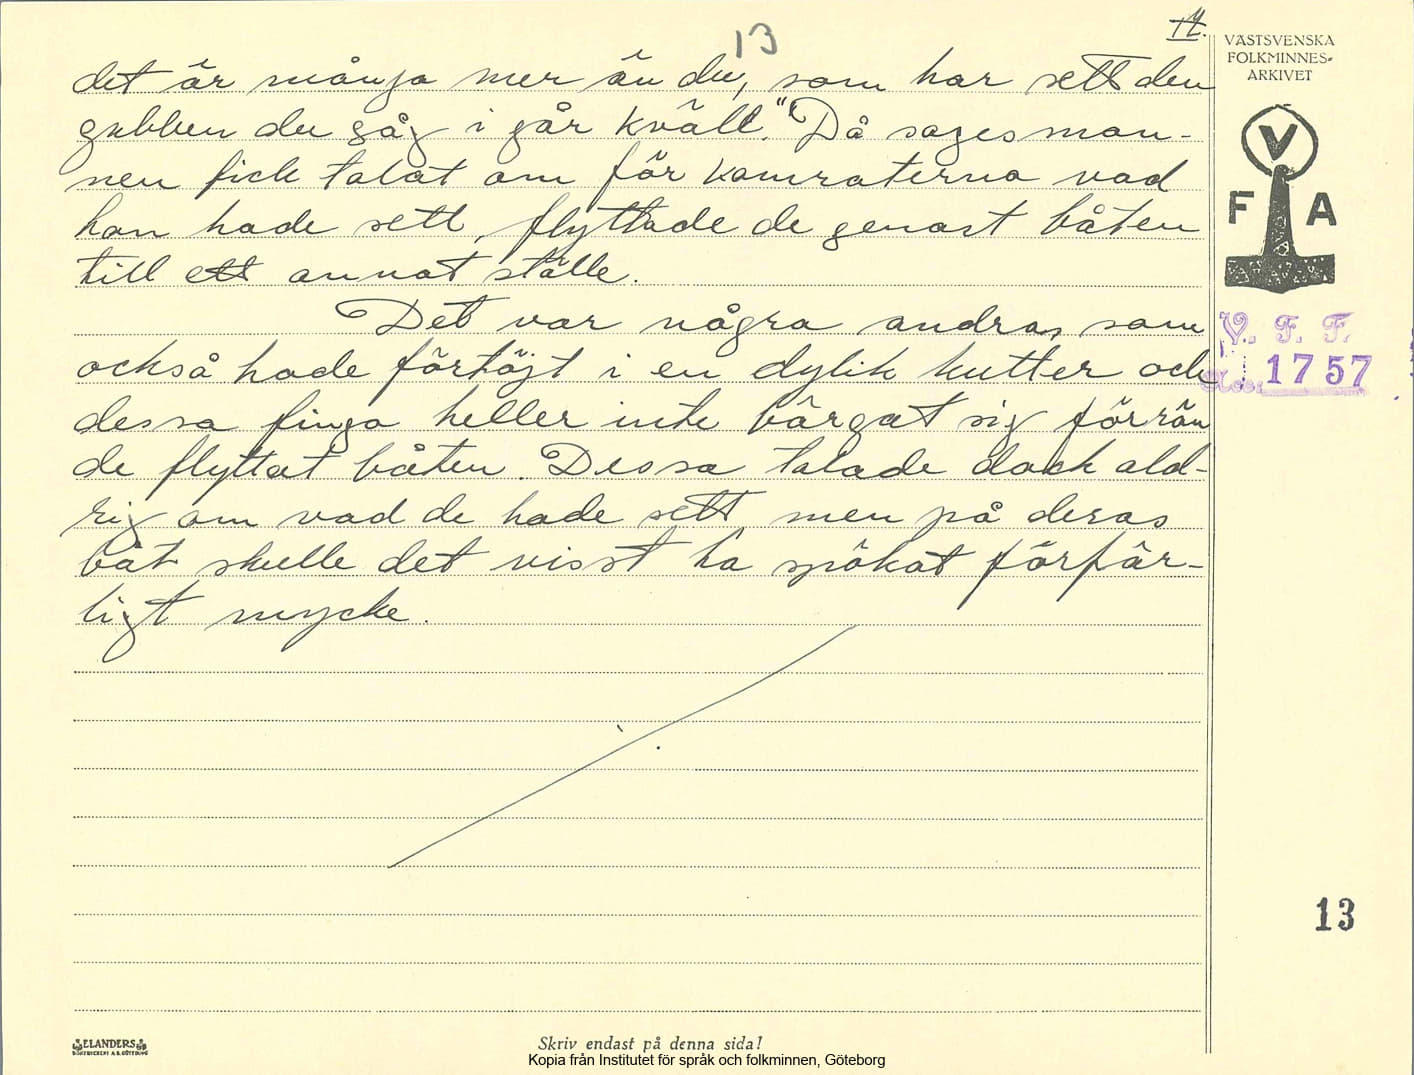 13
14.
VÄSTSVENSKA
FOLKMINNES-
ARKIVET
V
F A
V. F. F.
1757
det är många mer än du, som har sett den
gubben du såg i går kväll." Då sagesman-
nen fick talat om för kamraterna vad
han hade sett, flyttade de genast båten
till ett annat ställe.
Det var några andra, som
också hade förtöjt i en dylik kutter och
dessa finga heller inte bärgat sig förrän
de flyttat båten. Dessa talade dock ald-
rig om vad de hade sett men på deras
båt skulle det visst ha spökat förfär-
ligt mycke.
13
ELANDERS
BOKTRYCKERI A.B. GÖTEBORG
Skriv endast på denna sida!
Kopia från Institutet för språk och folkminnen, Göteborg